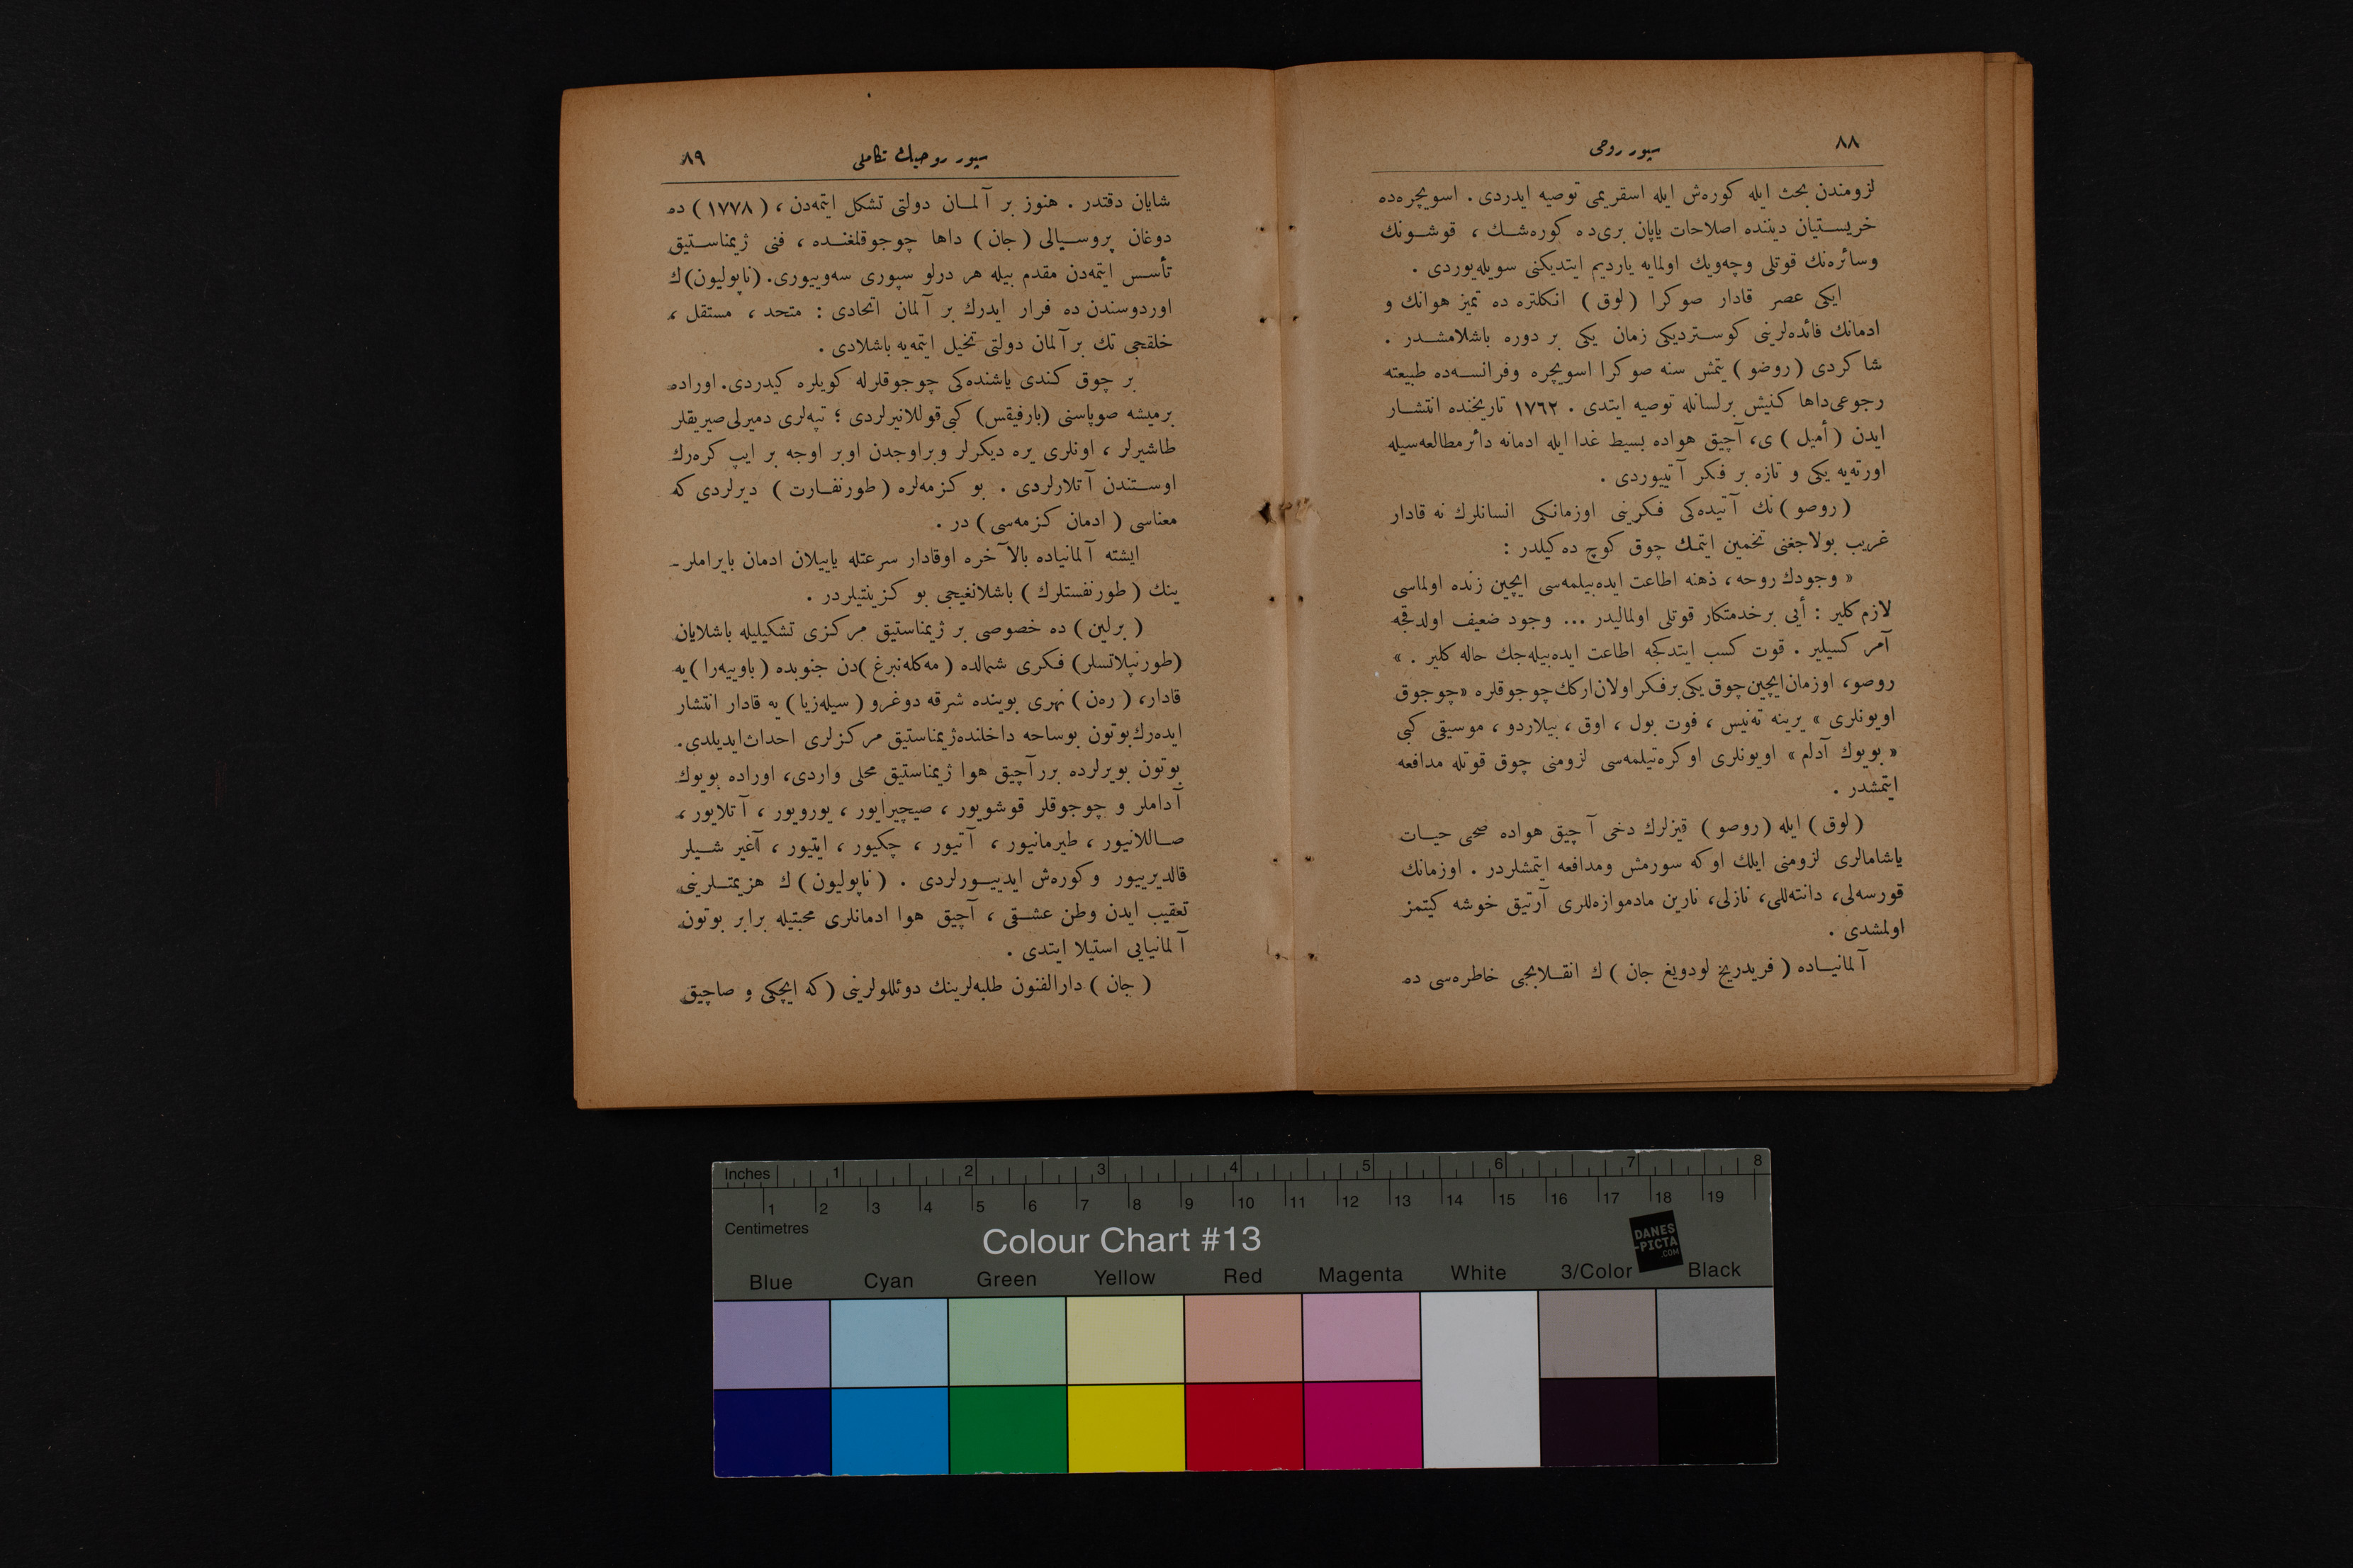 ٨٨
سپور روحی
لزومندن بحث ایله كوره‌ش ایله اسقریمی توصیه ایدردی . اسویچره‌ده
خریستیان دیننده اصلاحات یاپان بری‌ده كوره‌شك ، قوشونك
وسائره‌نك قوتلی وچه‌ویك اولمایه یاردیم ایتدیكنی سویله‌یوردی .
ایكی عصر قادار صوكرا (لوق) انكلتره ده تمیز هوانك و
ادمانك فائده‌لرینی كوستردیكی زمان یكی بر دوره باشلامشدر .
شاكردی (روضو) یتمش سنه صوكرا اسویچره وفرانسه‌ده طبیعته
رجوعی‌داها كنیش برلسانله توصیه ایتدی . ١٧٦٢ تاریخنده انتشار
ایدن (أمیل) ی، آچیق هواده بسیط غدا ایله ادمانه دائرمطالعه‌سیله
اورته‌یه یكی و تازه بر فكر آتییوردی .
(روصو) نك آتیده‌كی فكرینی اوزمانكی انسانلرك نه قادار
غریب بولاجغنی تخمین ایتمك چوق كوچ ده‌كیلدر :
« وجودك روحه، ذهنه اطاعت ایده‌بیلمه‌سی ایچین زنده اولماسی
لازم‌كلیر : أیی برخدمتكار قوتلی اولمالیدر ... وجود ضعیف اولدقجه
آمر كسیلیر . قوت كسب ایتدكجه اطاعت ایده‌بیله‌جك حاله كلیر . »
روصو، اوزمان‌ایچین‌چوق‌یكی‌برفكراولان‌اركك‌چوجوقلره «چوجوق
اویونلری» یرینه ته‌نیس ، فوت بول ، اوق ، بیلاردو ، موسیقی كبی
« بویوك آدلم » اویونلری اوكره‌تیلمه‌سی لزومنی چوق قوتله مدافعه
ایتمشدر .
(لوق) ایله (روصو) قیزلرك دخی آچیق هواده صحی حیات
یاشامالری لزومنی ایلك اوكه سورمش ومدافعه ایتمشلردر . اوزمانك
قورسه‌لی، دانته‌للی، نازلی، نارین مادموازه‌للری آرتیق خوشه كیتمز
اولمشدی .
آلمانیاده (فریدریخ لودویغ جان) ك انقلابجی خاطره‌سی ده
سپور روحینك تكاملی
٨٩
شایان دقتدر . هنوز بر آلمان دولتی تشكل ایتمه‌دن ، (١٧٧٨) ده
دوغان پروسیالی (جان) داها چوجوقلغنده ، فنی ژیمناستیق
تأسس ایتمه‌دن مقدم بیله هر درلو سپوری سه‌وییوری. (ناپولیون)ك
اوردوسندن ده فرار ایدرك بر آلمان اتحادی : متحد ، مستقل ،
خلقجی تك بر آلمان دولتی تخیل ایتمه‌یه باشلادی .
بر چوق كندی یاشنده‌كی چوجوقلرله كویلره كیدردی. اوراده
برمیشه صوپاسنی (بارفیقس) كبی‌قوللانیرلردی ؛ تپه‌لری دمیرلی‌صیریقلر
طاشیرلر ، اونلری یره دیكرلر وبراوجدن اوبر اوجه بر ایپ كره‌رك
اوستندن آتلارلردی . بو كزمه‌لره (طورنفارت) دیرلردی كه
معناسی (ادمان كزمه‌سی) در .
ایشته آلمانیاده بالآخره اوقادار سرعتله یاپیلان ادمان بایراملر-
ینك (طورنفستلرك) باشلانغیجی بو كزینتیلردر .
(برلین) ده خصوصی بر ژیمناستیق مركزی تشكیلیله باشلایان
(طورنپلاتسلر) فكری شمالده (مه‌كله‌نبرغ)دن جنوبده (باوییه‌را) یه
قادار، (ره‌ن) نهری بوینده شرقه دوغرو (سیله‌زیا) یه قادار انتشار
ایده‌رك‌بوتون بوساحه داخلنده‌ژیمناستیق مركزلری احداث‌ایدیلدی.
بوتون بویرلرده برر آچیق هوا ژیمناستیق محلی واردی، اوراده بویوك
آداملر و چوجوقلر قوشویور ، صیچیرایور ، یورویور ، آتلایور ،
صاللانیور ، طیرمانیور ، آتیور ، چكیور ، ایتیور ، آغیر شیلر
قالدیرییور وكوره‌ش ایدییورلردی . (ناپولیون) ك هزیمتلرینی
تعقیب ایدن وطن عشقی ، آچیق هوا ادمانلری محبتیله برابر بوتون
آلمانیایی استیلا ایتدی .
(جان) دارالفنون طلبه‌لرینك دوئللولرینی (كه ایچكی و صاچیق
Inches 1 2 3 4 5 6 7 8
1 2 3 4 5 6 7 8 9 10 11 12 13 14 15 16 17 18 19
Centimetres
Colour Chart #13
DANES
-PICTA
.COM
Blue Cyan Green Yellow Red Magenta White 3/Color Black